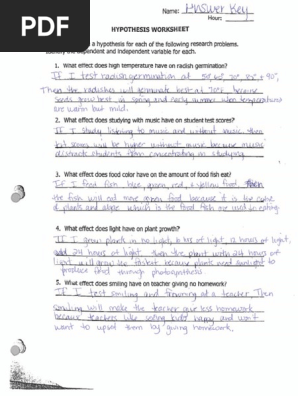 PDF
Name: Answer Key
Hour:
HYPOTHESIS WORKSHEET
a hypothesis for each of the following research problems.
the dependent and independent variable for each.
1. What effect does high temperature have on radish germination?
If I test radish germination at 50, 60, 70, 80, + 90,
Then the radishes will germinate best at 70°F, because
seeds grow best in spring and early summer when temperatures
are warm but mild.
2. What effect does studying with music have on student test scores?
If I study listening to music and without music then
test scores will be higher without music because music
distracts students from concentrating on studying
3. What effect does food color have on the amount of food fish eat?
If I feed fish blue, green, red, & yellow food, then
the fish will eat more green food because it is the color
of plants and algae which is the food fish are used to eating.
4. What effect does light have on plant growth?
If I grow plants in no light, 6 hrs of light, 12 hours of light,
and 24 hours of light, then the plant with 24 hours of
light will grow the tallest because plants need sunlight to
produce food through photosynthesis
5. What effect does smiling have on teacher giving no homework?
If I test smiling and frowning at a teacher, Then
smiling will make the teacher give less homework
because teachers like seeing kids happy and won't
want to upset them by giving homework.